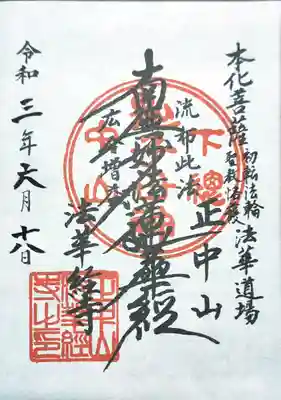 本化菩薩 初転法輪 聖教格護 法華道場
正中山
流布此法
広令増益
南無妙法蓮華経
法華経寺
令和三年六月十八日
下總
中山
正中山
法華経
寺之印